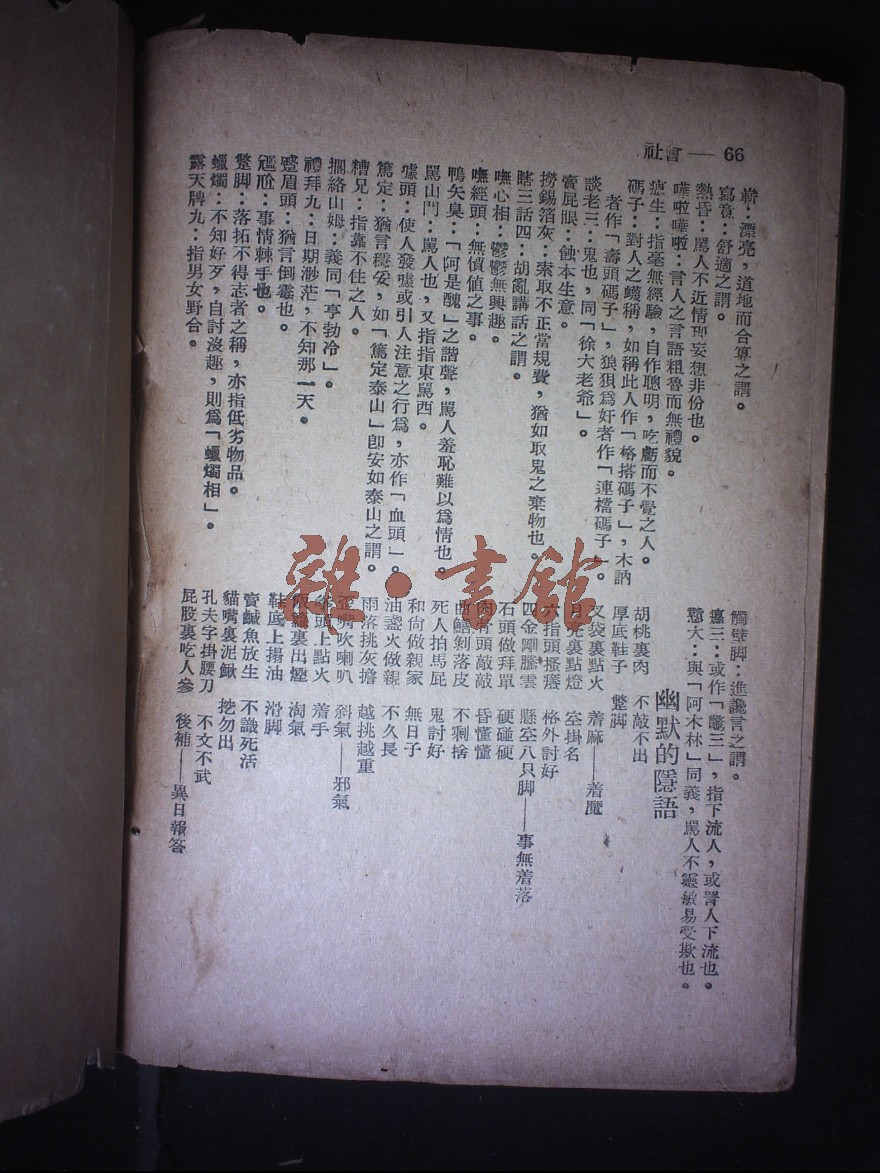 社會 — 66
嶄：漂亮，道地而合算之謂。
寫意：舒適之謂。
熱昏：罵人不近情理妄想非份也。
嘩啦嘩啦：言人之言語粗魯而無禮貌。
瘟生：指毫無經驗，自作聰明，吃虧而不覺之人。
碼子：對人之蔑稱，如稱此人作「格搭碼子」，木訥
者作「壽頭碼子」，狼狽爲奸者作「連檔碼子」。
談老三：鬼也，同「徐大老爺」。
賣屁眼：蝕本生意。
撈錫箔灰：索取不正當規費，猶如取鬼之棄物也。
瞎三話四：胡亂講話之謂。
嘸心相：鬱鬱無興趣。
嘸經頭：無價值之事。
鴨矢臭：「阿是醜」之諧聲，罵人羞恥難以爲情也。
罵山門：罵人也，又指指東罵西。
噱頭：使人發噱或引人注意之行爲，亦作「血頭」。
篤定：猶言穩妥，如「篤定泰山」卽安如泰山之謂。
糟兄：指靠不住之人。
擱絡山姆：義同「亨勃冷」。
禮拜九：日期渺茫，不知那一天。
蹙眉頭：猶言倒霉也。
尷尬：事情棘手也。
蹩脚：落拓不得志者之稱，亦指低劣物品。
蠟燭：不知好歹，自討沒趣，則爲「蠟燭相」。
露天牌九：指男女野合。
觸壁脚：進讒言之謂。
癟三：或作「鼈三」，指下流人，或詈人下流也。
戇大：與「阿木林」同義，罵人不靈敏易受欺也。
幽默的隱語
胡桃裏肉　不敲不出
厚底鞋子　蹩脚
叉袋裏點火　着麻——着魔
月亮裏點燈　空掛名
六指頭搔癢　格外討好
四金剛騰雲　懸空八只脚——事無着落
石頭做拜單　硬碰硬
肉骨頭敲敲　昏懂懂
曲鱔剝落皮　不剩捨
死人拍馬屁　鬼討好
和尚做親家　無日子
油盞火做親　不久長
雨落挑灰擔　越挑越重
歪嘴吹喇叭　斜氣——邪氣
頭上點火　着手
飯籮裏出煙　淘氣
鞋底上揚油　滑脚
賣鹹魚放生　不識死活
貓嘴裏泥鰍　挖勿出
孔夫字掛腰刀　不文不武
屁股裏吃人參　後補——異日報答
雜·書館